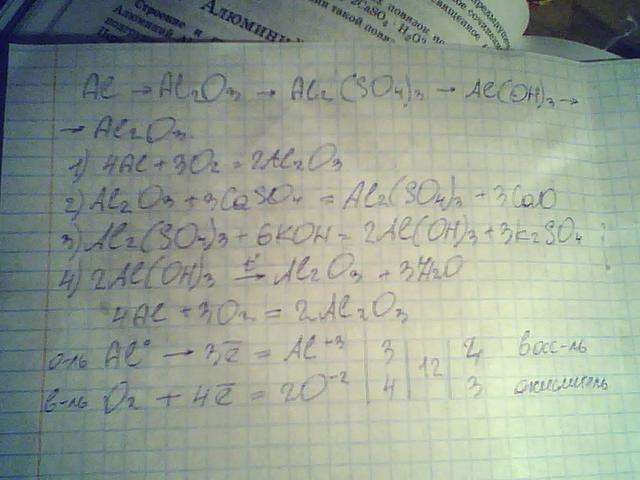 Алюминий
Строение и
CaSO₄ · H₂O
Al → Al₂O₃ → Al₂(SO₄)₃ → Al(OH)₃ →
→ Al₂O₃
1) 4Al + 3O₂ = 2Al₂O₃
2) Al₂O₃ + 3CaSO₄ = Al₂(SO₄)₃ + 3CaO
3) Al₂(SO₄)₃ + 6KOH = 2Al(OH)₃ + 3K₂SO₄
4) 2Al(OH)₃ →t° Al₂O₃ + 3H₂O
4Al + 3O₂ = 2Al₂O₃
о-ль Al⁰ → 3e̅ = Al⁺³ | 3 | 12 | 4 восс-ль
в-ль O₂ + 4e̅ = 2O⁻² | 4 | | 3 окислитель